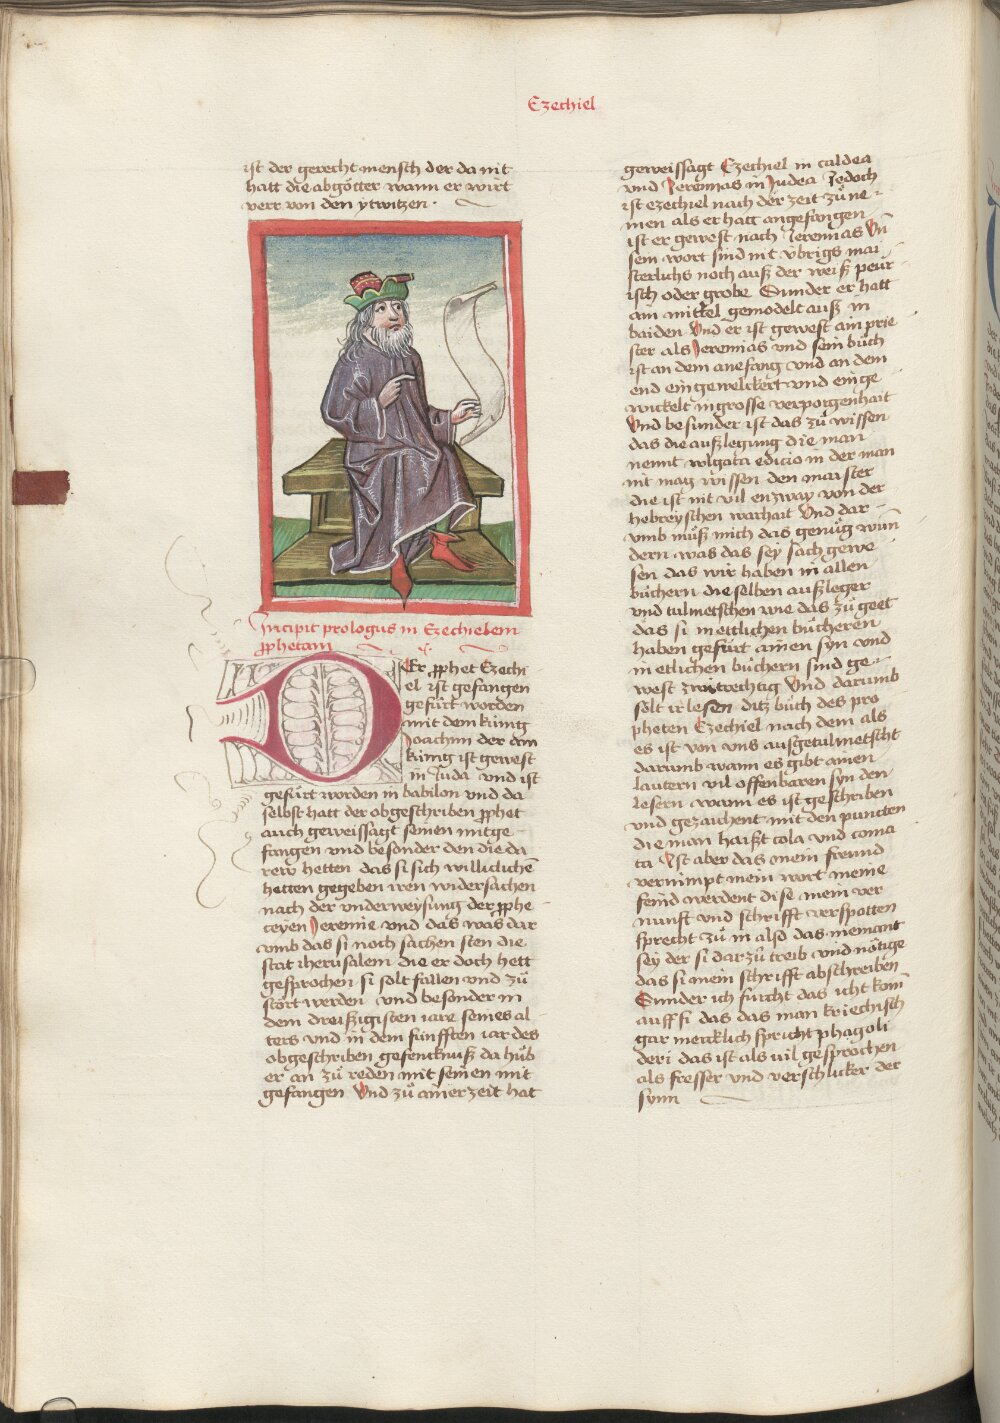 Ezechiel
ist der gerecht mensch der da nit
hatt die abgötter wann er wirt
verr von den ytwitzen ·
Incipit prologus in Ezechielem
prophetam
DEr prophet Ezechi
el ist gefangen
gefürt worden
mit dem künig
Joachim der am
künig ist gewest
in Juda vnd ist
gefürt worden in babilon vnd da
selbst hatt der obgeschriben prophet
auch geweissagt seinen mitge
fangen vnd besonder den die da
rew hetten das si sich williclichen
hetten gegeben iren widersachen
nach der vnderweysung der prophe
ceyen Jeremie vnd das was dar
vmb das si noch sachen sten die
stat iherusalem die er doch hett
gesprochen si solt fallen vnd zů
stört werden vnd besonder in
dem dreißigisten iare seines al
ters vnd in dem fünfften iar des
obgeschriben gefencknuß da hůb
er an zů reden mit seinen mit
gefangen Vnd zů ainer zeit hat
geweissagt Ezechiel in caldea
vnd Jeremias in Judea Jedoch
ist ezechiel nach der zeit zů ne
men als er hatt angefangen
ist er gewest nach Jeremias Vn
sein wort sind nit vbrigs mai
sterlichs noch auß der weiß peur
isch oder grobe Sunder er hatt
ain mittel gemodelt auß in
baiden Vnd er ist gewest ain prie
ster als Jeremias vnd sein bůch
ist an dem anefang vnd an dem
end eingewelckert vnd einge
wickelt in grosse verporgenhait
Vnd besunder ist das zů wissen
das die außlegung die man
nennt wlgata edicio in der man
nit mag wissen den maister
die ist nit vil enzway von der
hebreyschen warhait Vnd dar
vmb můß mich das genůg wun
dern was das sey sach gewe
sen das wir haben in allen
büchern die selben außleger
vnd tulmetschen wie das zů geet
das si in ettlichen bücheren
haben gefürt ainen syn vnd
in etlichen büchern sind ge
west zwitrechtig Vnd darumb
solt ir lesen ditz bůch des pro
pheten Ezechiel nach dem als
es ist von vns ausgetulmetscht
darumb wann es gibt ainen
lautern vil offenbaren syn den
lesern wann es ist geschriben
vnd gezaichent mit den puncten
die man haißt cola vnd coma
ta Ist aber das mein freund
vernimpt mein wort meine
feind werdent dise mein ver
nunft vnd schrifft verspotten
sprecht zů in also das niemant
sey der si dar zů treib vnd nötige
das si mein schrifft abschreiben
Sunder ich fürcht das icht kom
auff si das das man kriechisch
gar mercklich spricht phagoli
deri das ist als vil gesprochen
als fresser vnd verschlicker der
synn